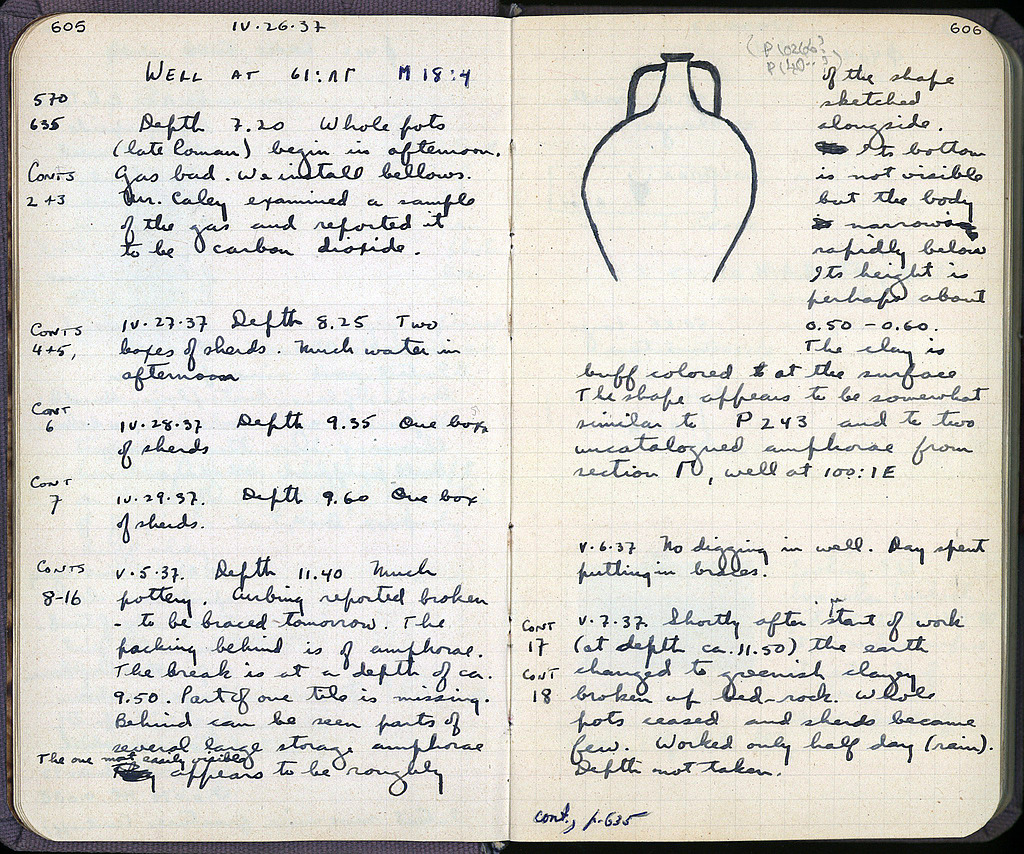 605
IV·26·37
WELL AT 61:ΛΓ M 18:4
570
635
Depth 7.20 Whole pots
(late Roman) begin in afternoon.
CONTS
2+3
Gas bad. We install bellows.
Mr. Caley examined a sample
of the gas and reported it
to be carbon dioxide.
CONTS
4+5,
IV·27·37 Depth 8.25 Two
boxes of sherds. Much water in
afternoon
CONT
6
IV·28·37 Depth 9.35 One box
of sherds
CONT
7
IV·29·37. Depth 9.60 One box
of sherds.
CONTS
8-16
V·5·37. Depth 11.40 Much
pottery. Curbing reported broken
- to be braced tomorrow. The
packing behind is of amphorae.
The break is at a depth of ca.
9.50. Part of one tile is missing.
Behind can be seen parts of
several large storage amphorae
The one most easily visible
appears to be roughly
606
of the shape
sketched
alongside.
Its bottom
is not visible
but the body
narrows
rapidly below
Its height is
perhaps about
0.50 - 0.60.
The clay is
buff colored at the surface
The shape appears to be somewhat
similar to P 243 and to two
uncatalogued amphorae from
section Π, well at 100:IE
V·6·37 No digging in well. Day spent
putting in braces.
CONT
17
V·7·37. Shortly after start of work
(at depth ca. 11.50) the earth
CONT
18
changed to greenish clayey
broken up bed-rock. Whole
pots ceased and sherds became
few. Worked only half day (rain).
Depth not taken.
cont., p. 635